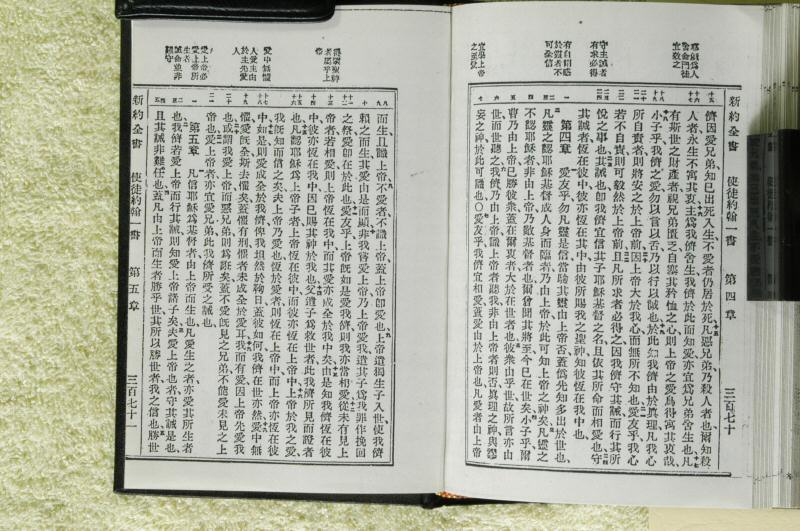 新約全書 使徒約翰一書 第四章 三百七十
儕因愛兄弟知已出死入生不愛者仍居於死凡惡兄弟乃殺人者也爾知殺
人者永生不寓其衷主爲我儕舍生我儕於此而知愛亦宜爲兄弟舍生也凡
有斯世之財產者視兄弟匱乏自塞其矜恤之心則上帝之愛烏得寓其衷哉
小子乎我儕之愛勿以言以舌乃以行以誠也於此知我儕由於眞理凡我心
所自責者則將安之於上帝前因上帝大於我心而無所不知也愛友乎我心
若不自責則可毅然於上帝前且凡所求者必得之因我儕守其誡而行其所
悅之事也其誡也卽我儕宜信其子耶穌基督之名且依其所命而相愛也守
其誡者恆在彼中彼亦恆在其中由彼所賜我之聖神知彼恆在我中也
第四章 愛友乎勿凡靈是信當驗其靈由上帝否蓋僞先知多出於世也
凡靈之認耶穌基督成人身而臨者乃由上帝於此可知上帝之神矣凡靈之
不認耶穌者非由上帝乃敵基督者也爾曾聞其將至今已在世矣小子乎爾
曹乃由上帝已勝彼衆蓋在爾衷者大於在世者也彼衆由乎世故所言亦由
世而世聽之我儕乃由上帝識上帝者聽我非由上帝者則否眞理之神與謬
妄之神於此可識也○愛友乎我儕宜相愛蓋愛由於上帝也凡愛者由上帝
而生且識上帝也不愛者不識上帝蓋上帝卽愛也上帝遣獨生子入世使我儕
賴之而生其愛由是而顯非我曾愛上帝乃上帝愛我遣其子爲我罪作挽回
之祭愛卽在於此也愛友乎上帝旣如是愛我儕則我亦當相愛從未有見上
帝者若相愛則上帝恆在我中而其愛亦成全於我中矣由是知我儕恆在彼
中彼亦恆在我中因已賜其神於我也父遣子爲救世者此我儕所見而證者
也凡認耶穌爲上帝子者上帝恆在彼中而彼亦恆在上帝中上帝於我之愛
我旣知而信之矣夫上帝乃愛也恆於愛者則恆在上帝中而上帝亦恆在彼
中如是則愛成全於我儕俾我坦然於鞫日蓋彼如何我儕在世亦然愛中無
懼愛旣全斯去懼矣蓋懼有刑懼者未成全於愛耳我而有愛因上帝先愛我
也或謂我愛上帝而惡兄弟則爲誑矣蓋不愛旣見之兄弟不能愛未見之上
帝也愛上帝者亦宜愛兄弟此我儕所受之誡也
第五章 凡信耶穌爲基督者由上帝而生也凡愛生之者亦愛其所生者
也我儕若愛上帝而行其誡則知愛上帝諸子矣夫愛上帝也者守其誡是也
且其誡非難任也蓋凡由上帝而生者勝乎世其所以勝世者我之信也勝世
新約全書 使徒約翰一書 第五章 三百七十一